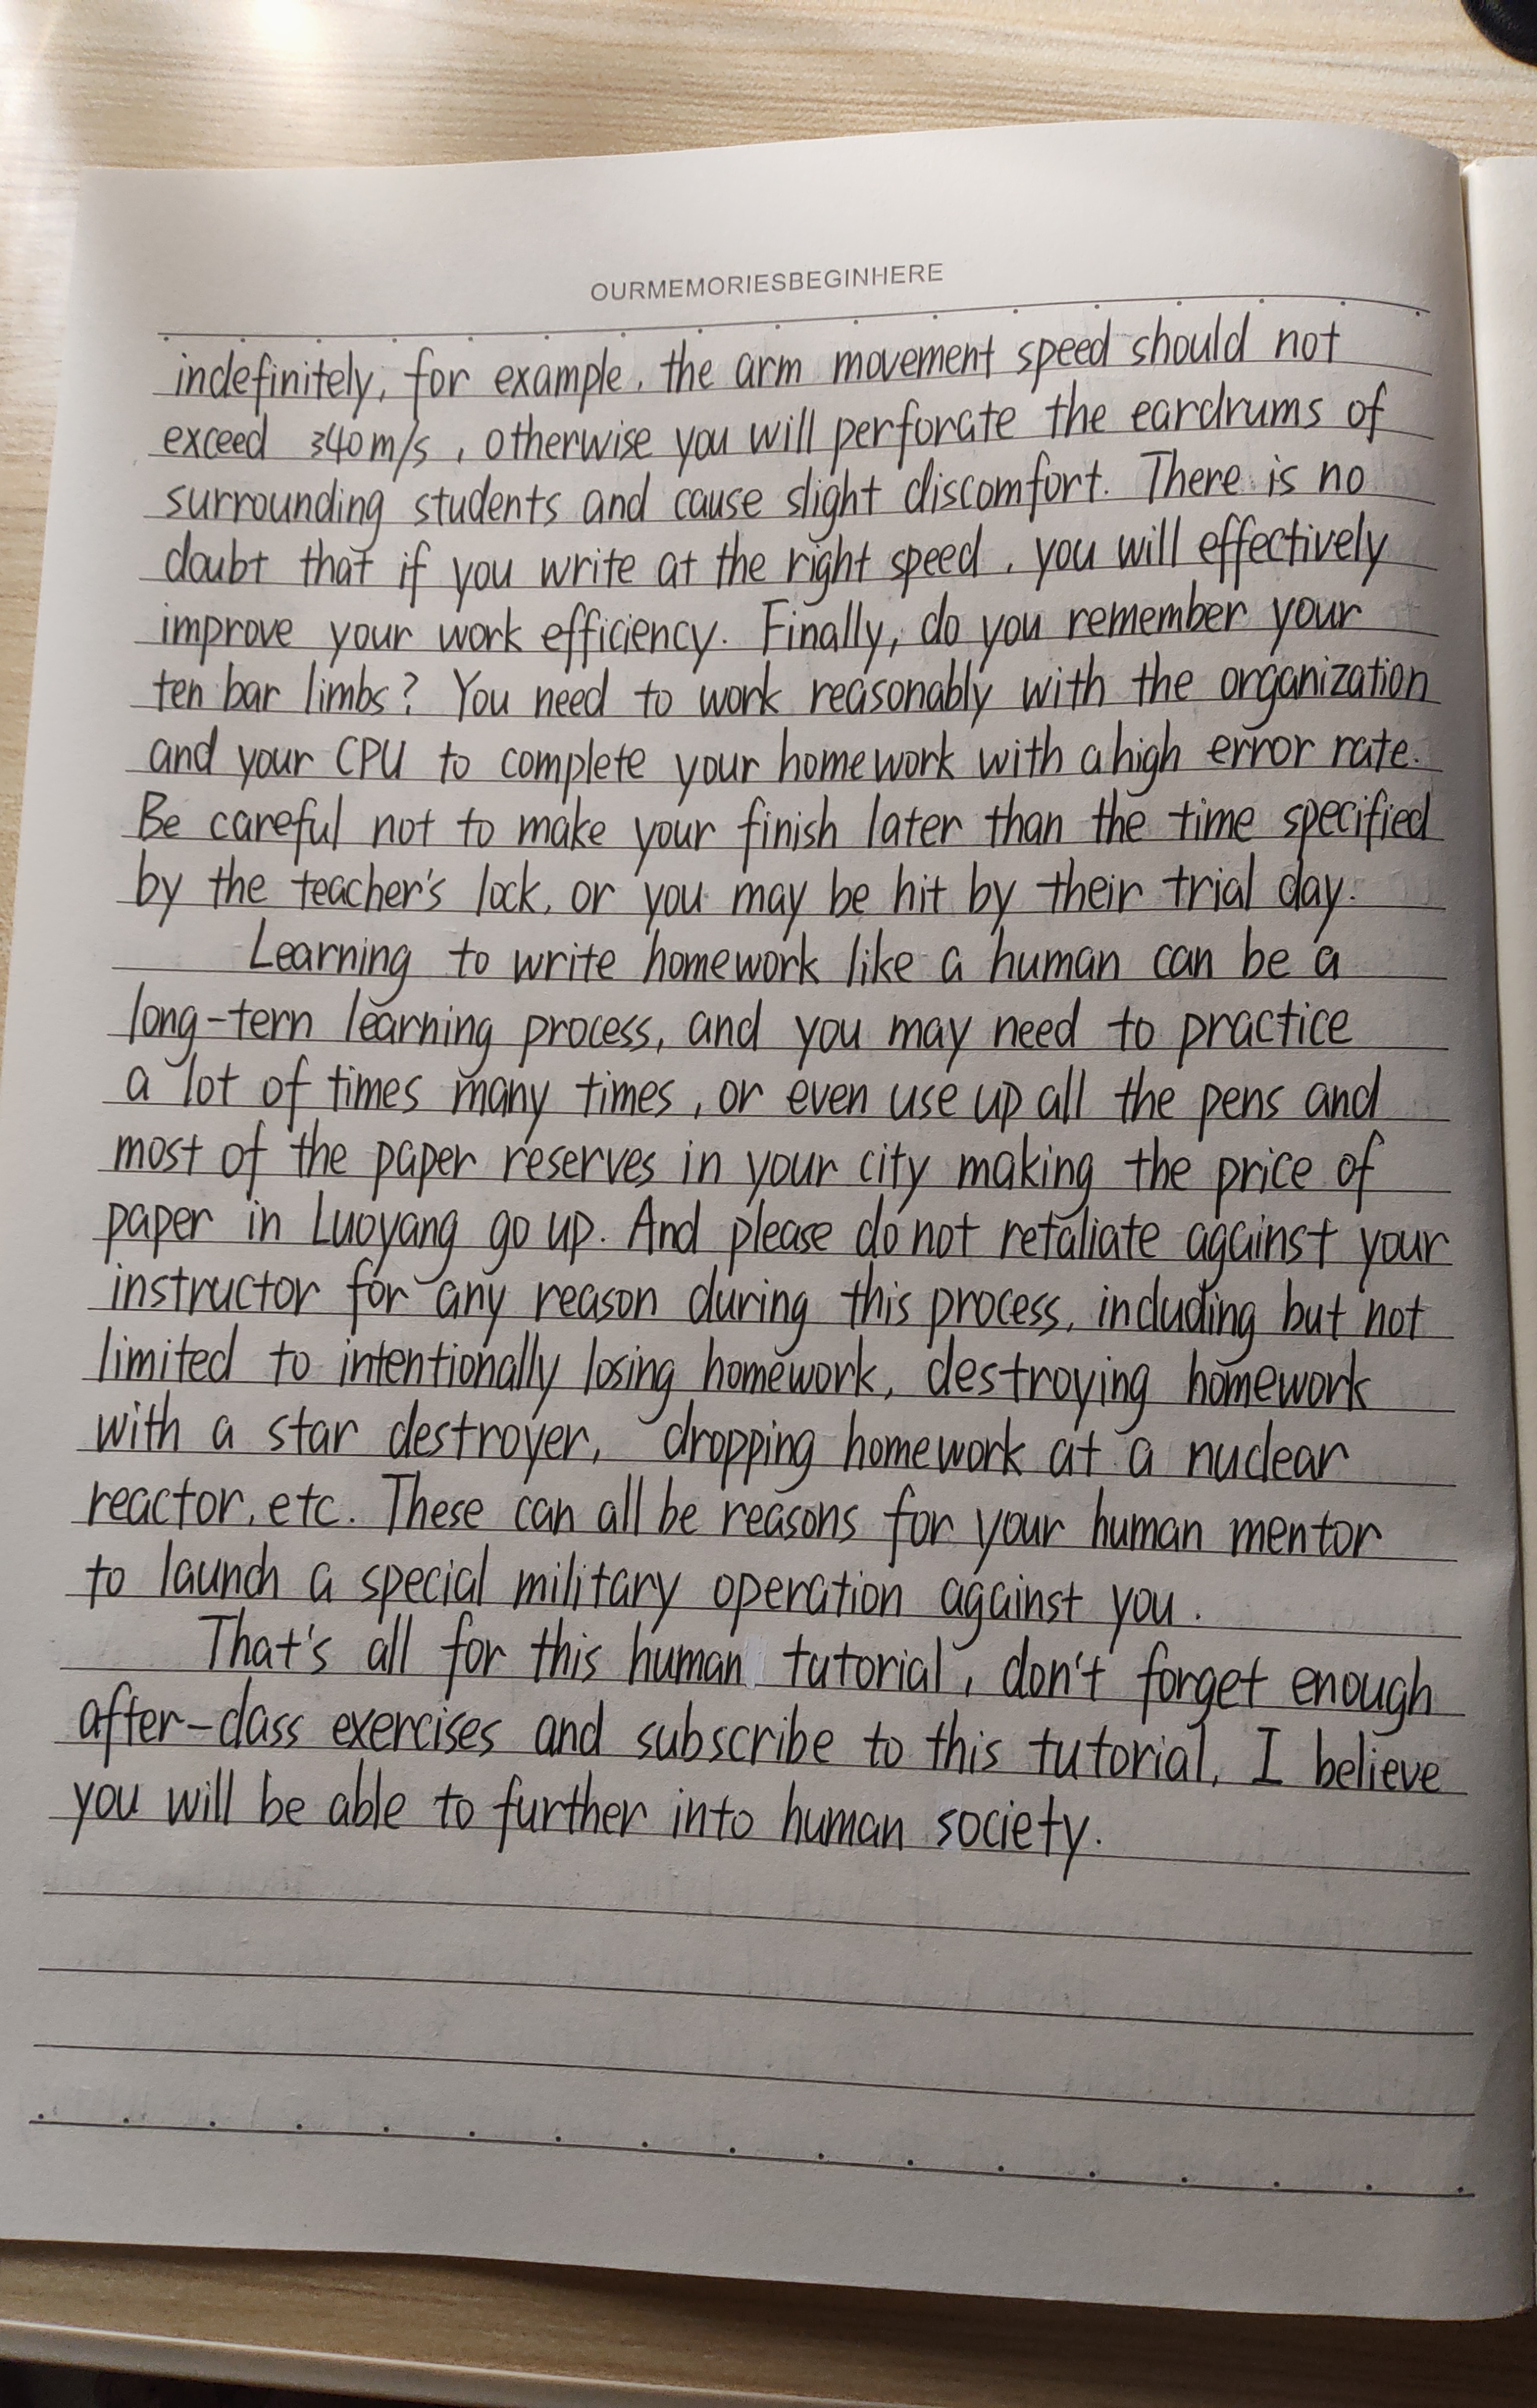 OURMEMORIESBEGINHERE
indefinitely, for example, the arm movement speed should not
exceed 340m/s, otherwise you will perforate the eardrums of
surrounding students and cause slight discomfort. There is no
doubt that if you write at the right speed, you will effectively
improve your work efficiency. Finally, do you remember your
ten bar limbs? You need to work reasonably with the organization
and your CPU to complete your homework with a high error rate.
Be careful not to make your finish later than the time specified
by the teacher's lock, or you may be hit by their trial day.
Learning to write homework like a human can be a
long-tern learning process, and you may need to practice
a lot of times many times, or even use up all the pens and
most of the paper reserves in your city making the price of
paper in Luoyang go up. And please do not retaliate against your
instructor for any reason during this process, including but not
limited to intentionally losing homework, destroying homework
with a star destroyer, dropping homework at a nuclear
reactor, etc. These can all be reasons for your human mentor
to launch a special military operation against you.
That's all for this human tutorial, don't forget enough
after-class exercises and subscribe to this tutorial, I believe
you will be able to further into human society.